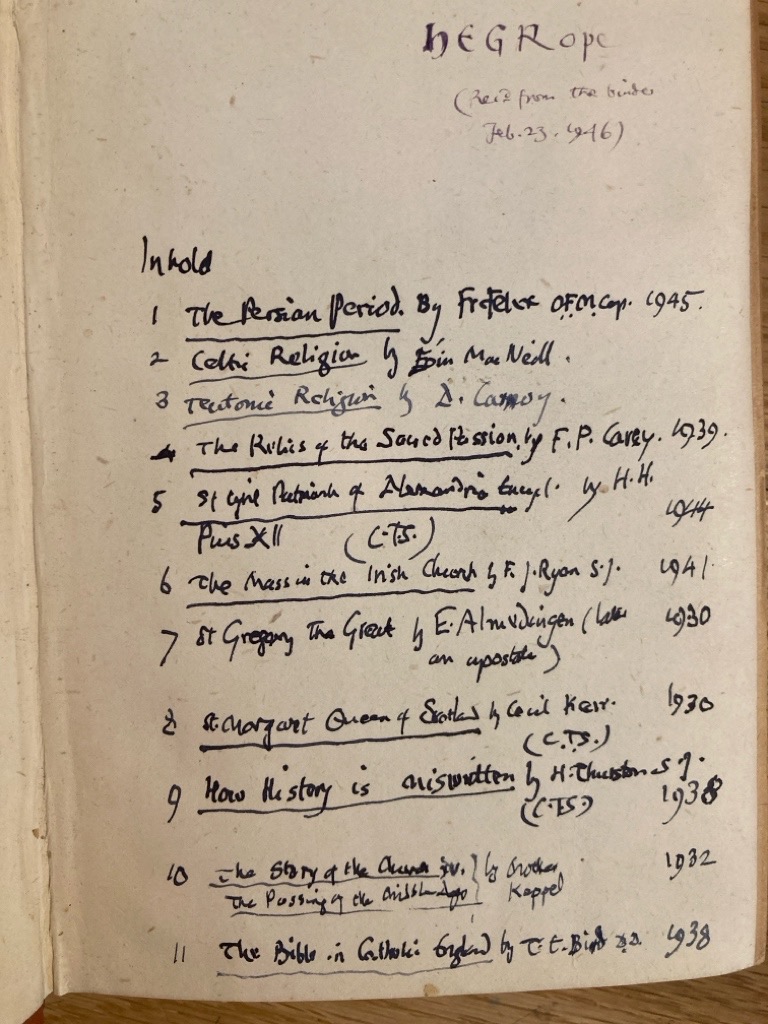 HEGRope
(Rec'd from the binder
Feb. 23. 1946)
Inhold
1 The Persian Period. By Fr Felix O.F.M.Cap. 1945.
2 Celtic Religion by Eoin MacNeill.
3 Teutonic Religion by A. Carnoy.
4 The Relics of the Sacred Passion by F. P. Carey. 1939.
5 St Cyril Patriarch of Alexandria Encycl. by H.H.
Pius XII (C.T.S.) 1944
6 The Mass in the Irish Church by F. J. Ryan S.J. 1941.
7 St Gregory The Great by E. Almedingen (later 1930
an apostate)
8 St Margaret Queen of Scotland by Cecil Kerr. 1930
(C.T.S.)
9 How History is miswritten by H. Thurston S.J.
(C.T.S.) 1938
10 The Story of the Church IV. by Brother 1932
The Passing of the Middle Ages Kappel
11 The Bible in Catholic England by T. E. Bird D.D. 1938